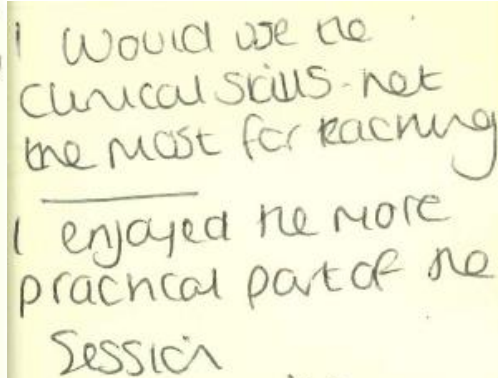 I would use the
clinical skills. net
the most for teaching
I enjoyed the more
practical part of the
session